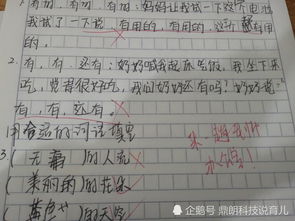 有,有,有有:妈妈让我试一下这个电池
我试了一下说,有用的,有用的,这个 有用
的。
2. 有,有,还有:奶奶喊我起床吃饭。我坐下来
吃,觉得很好吃,我问奶奶还有吗?奶奶说:"
有,有,还有。
合适的词语填空
3.
(无 )的人流
(美丽的)的花朵
(蓝色 )的天空
企鹅号 鼎朗科技说育儿